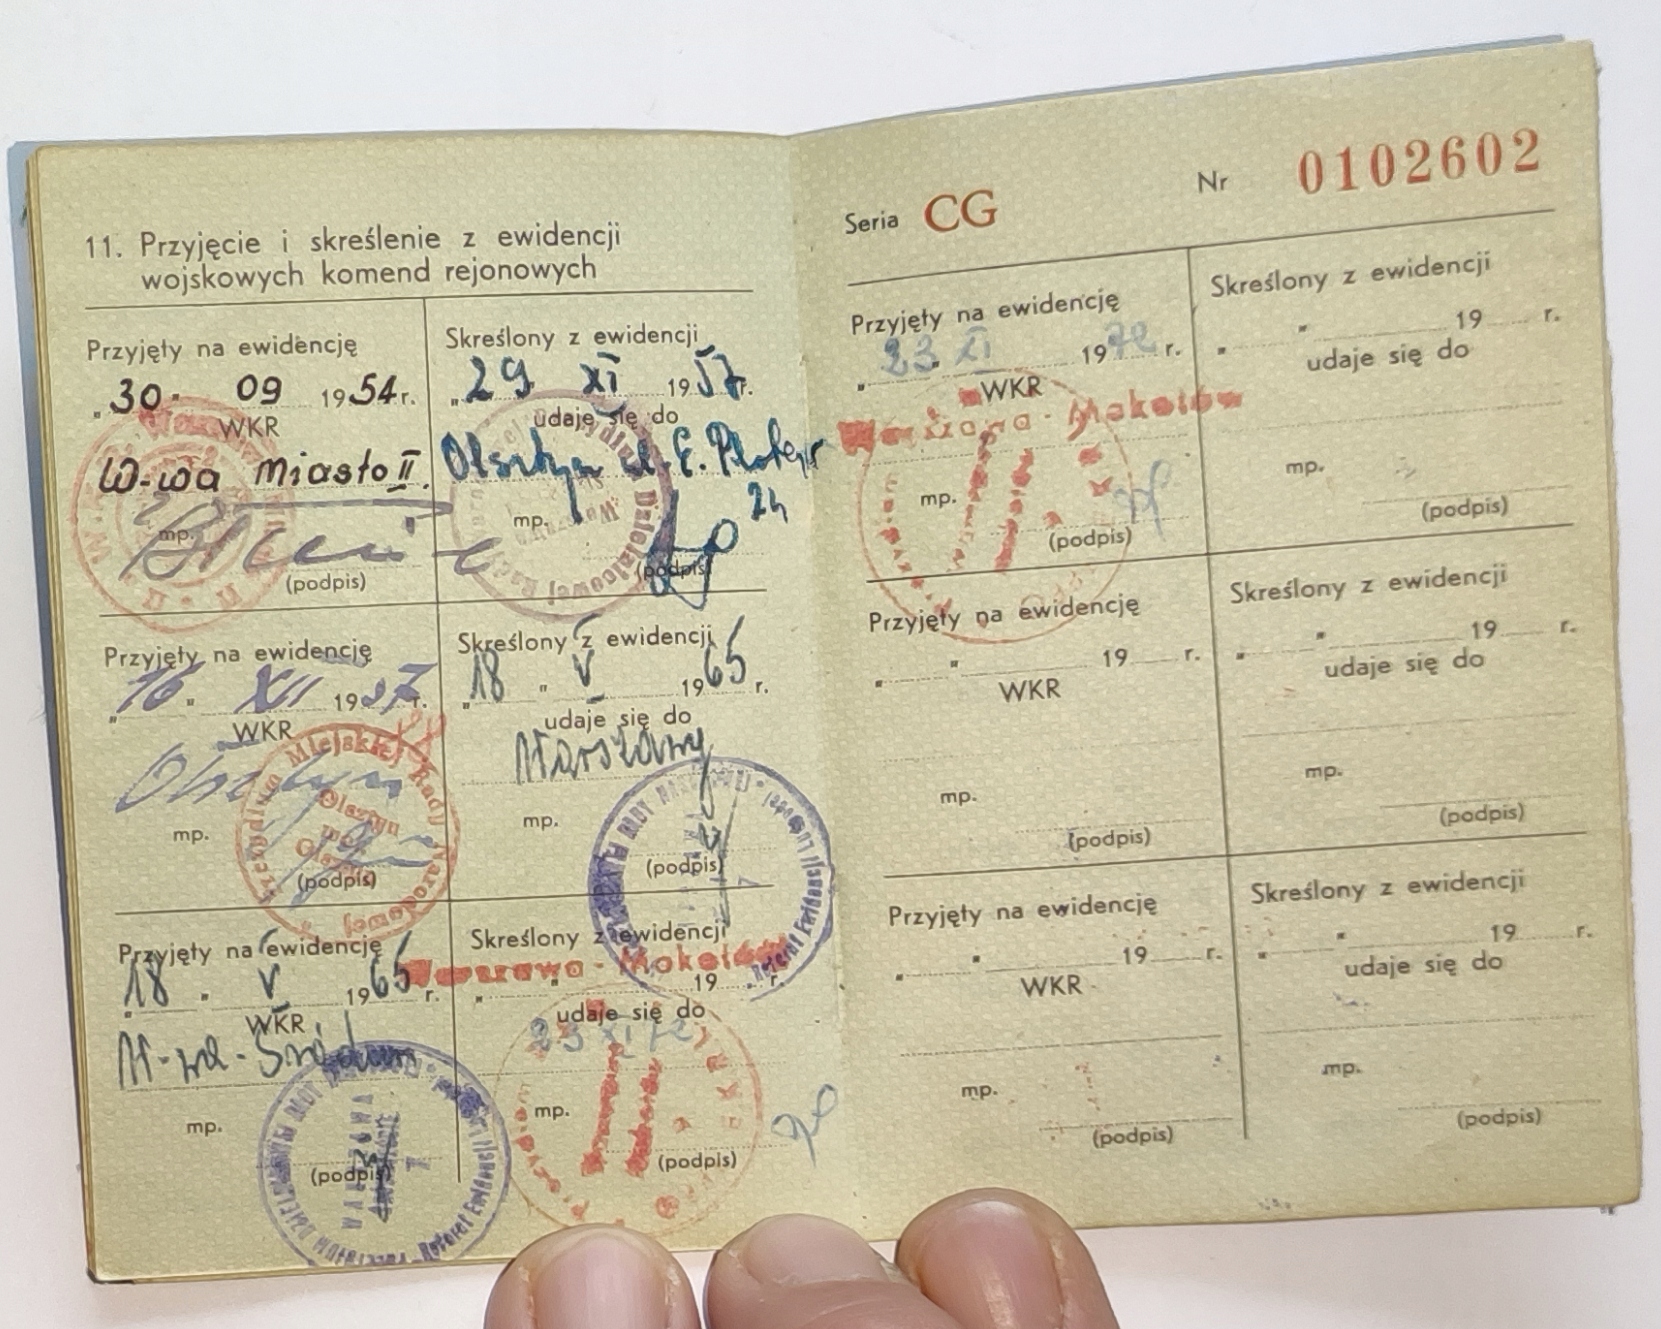 11. Przyjęcie i skreślenie z ewidencji
wojskowych komend rejonowych
Przyjęty na ewidencję
„30" 09 1954 r.
WKR
W-wa Miasto II.
mp.
(podpis)
Skreślony z ewidencji
„29 XI 1957 r.
udaje się do
Olsztyn ul. E. Plater
24
mp.
(podpis)
Przyjęty na ewidencję
„16" XII 1957 r.
WKR
Olsztyn
mp.
(podpis)
Prezydium Miejskiej Rady Narodowej
Olsztyn
Skreślony z ewidencji
„18" V 1965 r.
udaje się do
Warszawy
mp.
(podpis)
Przyjęty na ewidencję
„18" V 1965 r.
WKR
W-wa-Śródm
mp.
(podpis)
Referat Ewidencji Ludności
7
Skreślony z ewidencji
Warszawa-Mokotów
„ " 19 r.
udaje się do
23 XI 72
mp.
(podpis)
Seria CG Nr 0102602
Przyjęty na ewidencję
„23" XI 1972 r.
WKR
Warszawa-Mokotów
mp.
(podpis)
Skreślony z ewidencji
„ " 19 r.
udaje się do
mp.
(podpis)
Przyjęty na ewidencję
„ " 19 r.
WKR
mp.
(podpis)
Skreślony z ewidencji
„ " 19 r.
udaje się do
mp.
(podpis)
Przyjęty na ewidencję
„ " 19 r.
WKR
mp.
(podpis)
Skreślony z ewidencji
„ " 19 r.
udaje się do
mp.
(podpis)